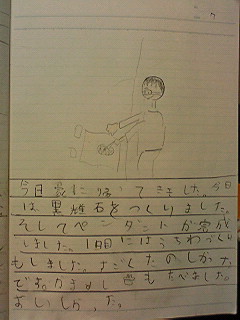 今日家に帰ってきました。今日
は黒輝石をつくりました。
そしてペンダントが完成
しました。1日目にはうちわづくり
もしました。すごくたのしかった
です。おかまめしもたべました。
おいしかった。